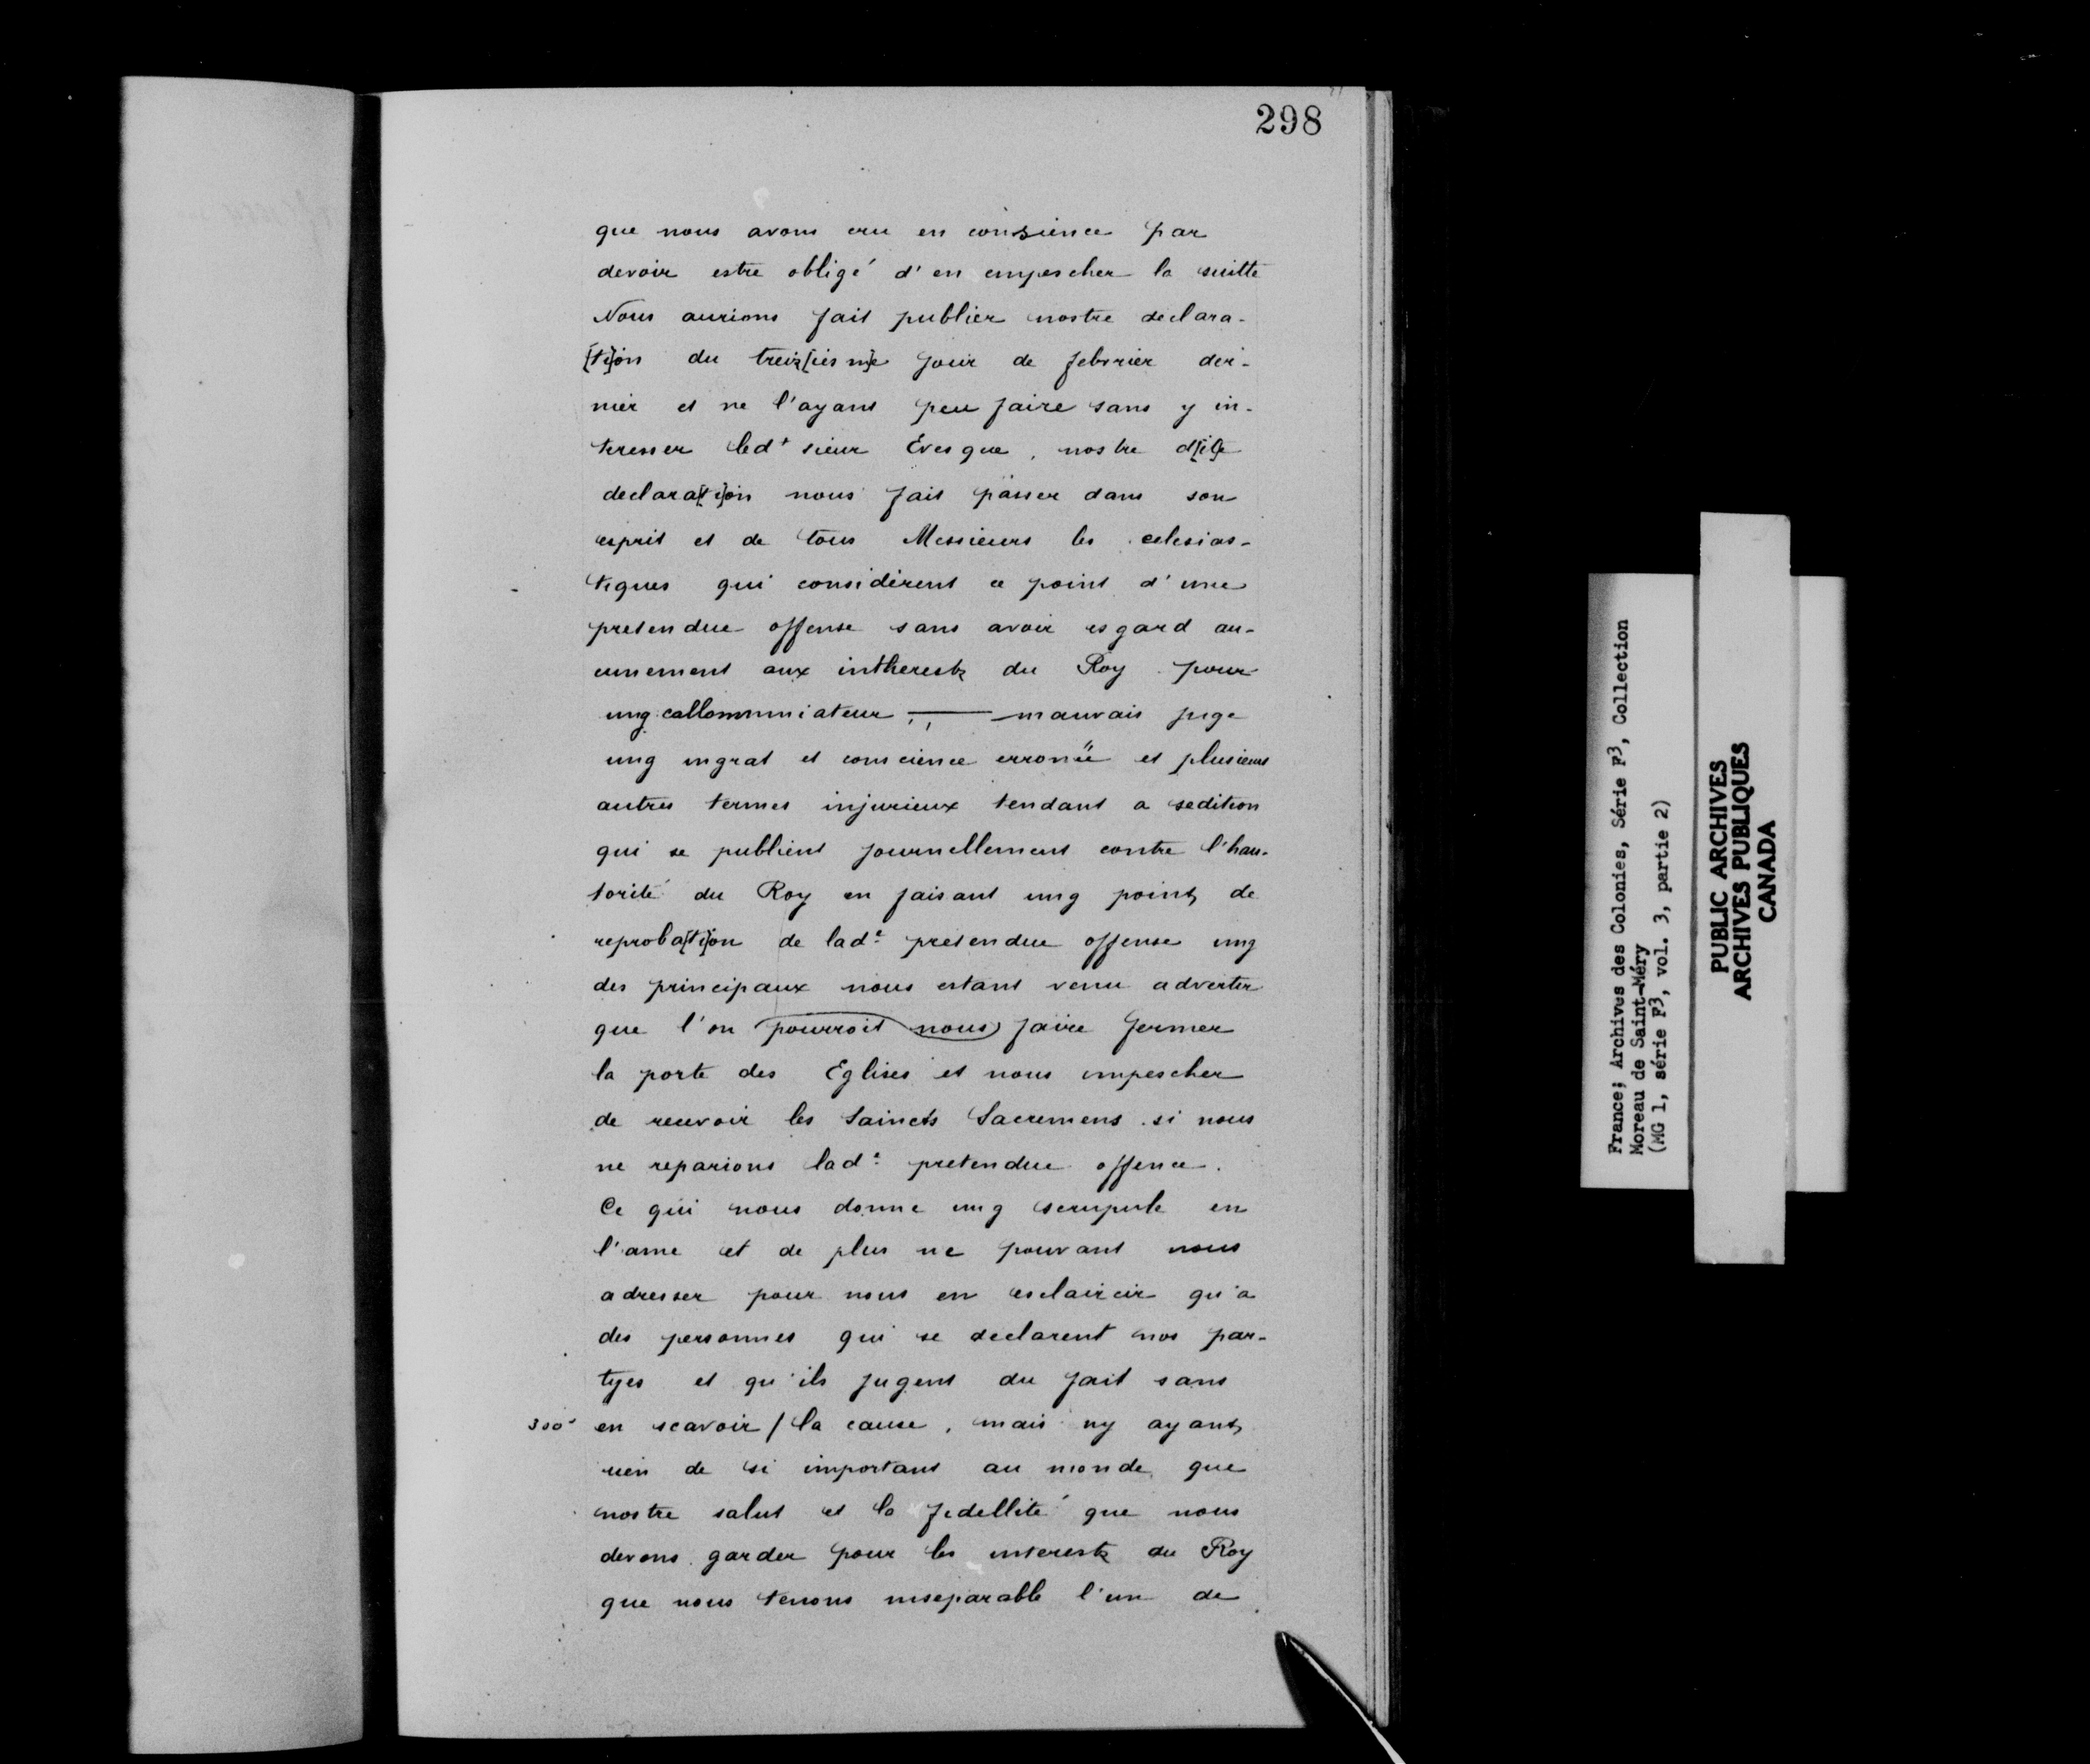 298
que nous avons cru en consience par
devoir estre obligé d'en empescher la suitte
Nous aurions fait publier nostre declara-
[ti]on du treiz[iesm]e jour de febvrier der-
nier et ne l'ayant peu faire sans y in-
teresser led^t sieur Evesque, nostre d[it]e
declara[ti]on nous fait passer dans son
esprit et de tous Messieurs les eclesias-
tiques qui considèrent ce point d'une
pretendue offense sans avoir esgard au-
cunement aux intherestz du Roy pour
ung callommniateur, — mauvais juge
ung ingrat et conscience erronée et plusieurs
autres termes injurieux tendant a sedition
qui se publient journellement contre l'hau-
torité du Roy en faisant ung point de
reproba[ti]on de lad^e pretendue offense ung
des principaux nous estant venu advertir
que l'on pourroit nous faire fermer
la porte des Eglises et nous empescher
de recevoir les Saincts Sacremens si nous
ne reparions lad^e pretendue offence.
Ce qui nous donne ung scrupule en
l'ame et de plus ne pouvant nous
adresser pour nous en esclaircir qu'a
des personnes qui se declarent nos par-
tyes et qu'ils jugent du fait sans
300^v en scavoir / la cause, mais ny ayant
rien de si important au monde que
nostre salut et la fidellité que nous
devons garder pour les interestz du Roy
que nous tenons inseparable l'un de
France; Archives des Colonies, Série F3, Collection
Moreau de Saint-Méry
(MG 1, série F3, vol. 3, partie 2)
PUBLIC ARCHIVES
ARCHIVES PUBLIQUES
CANADA